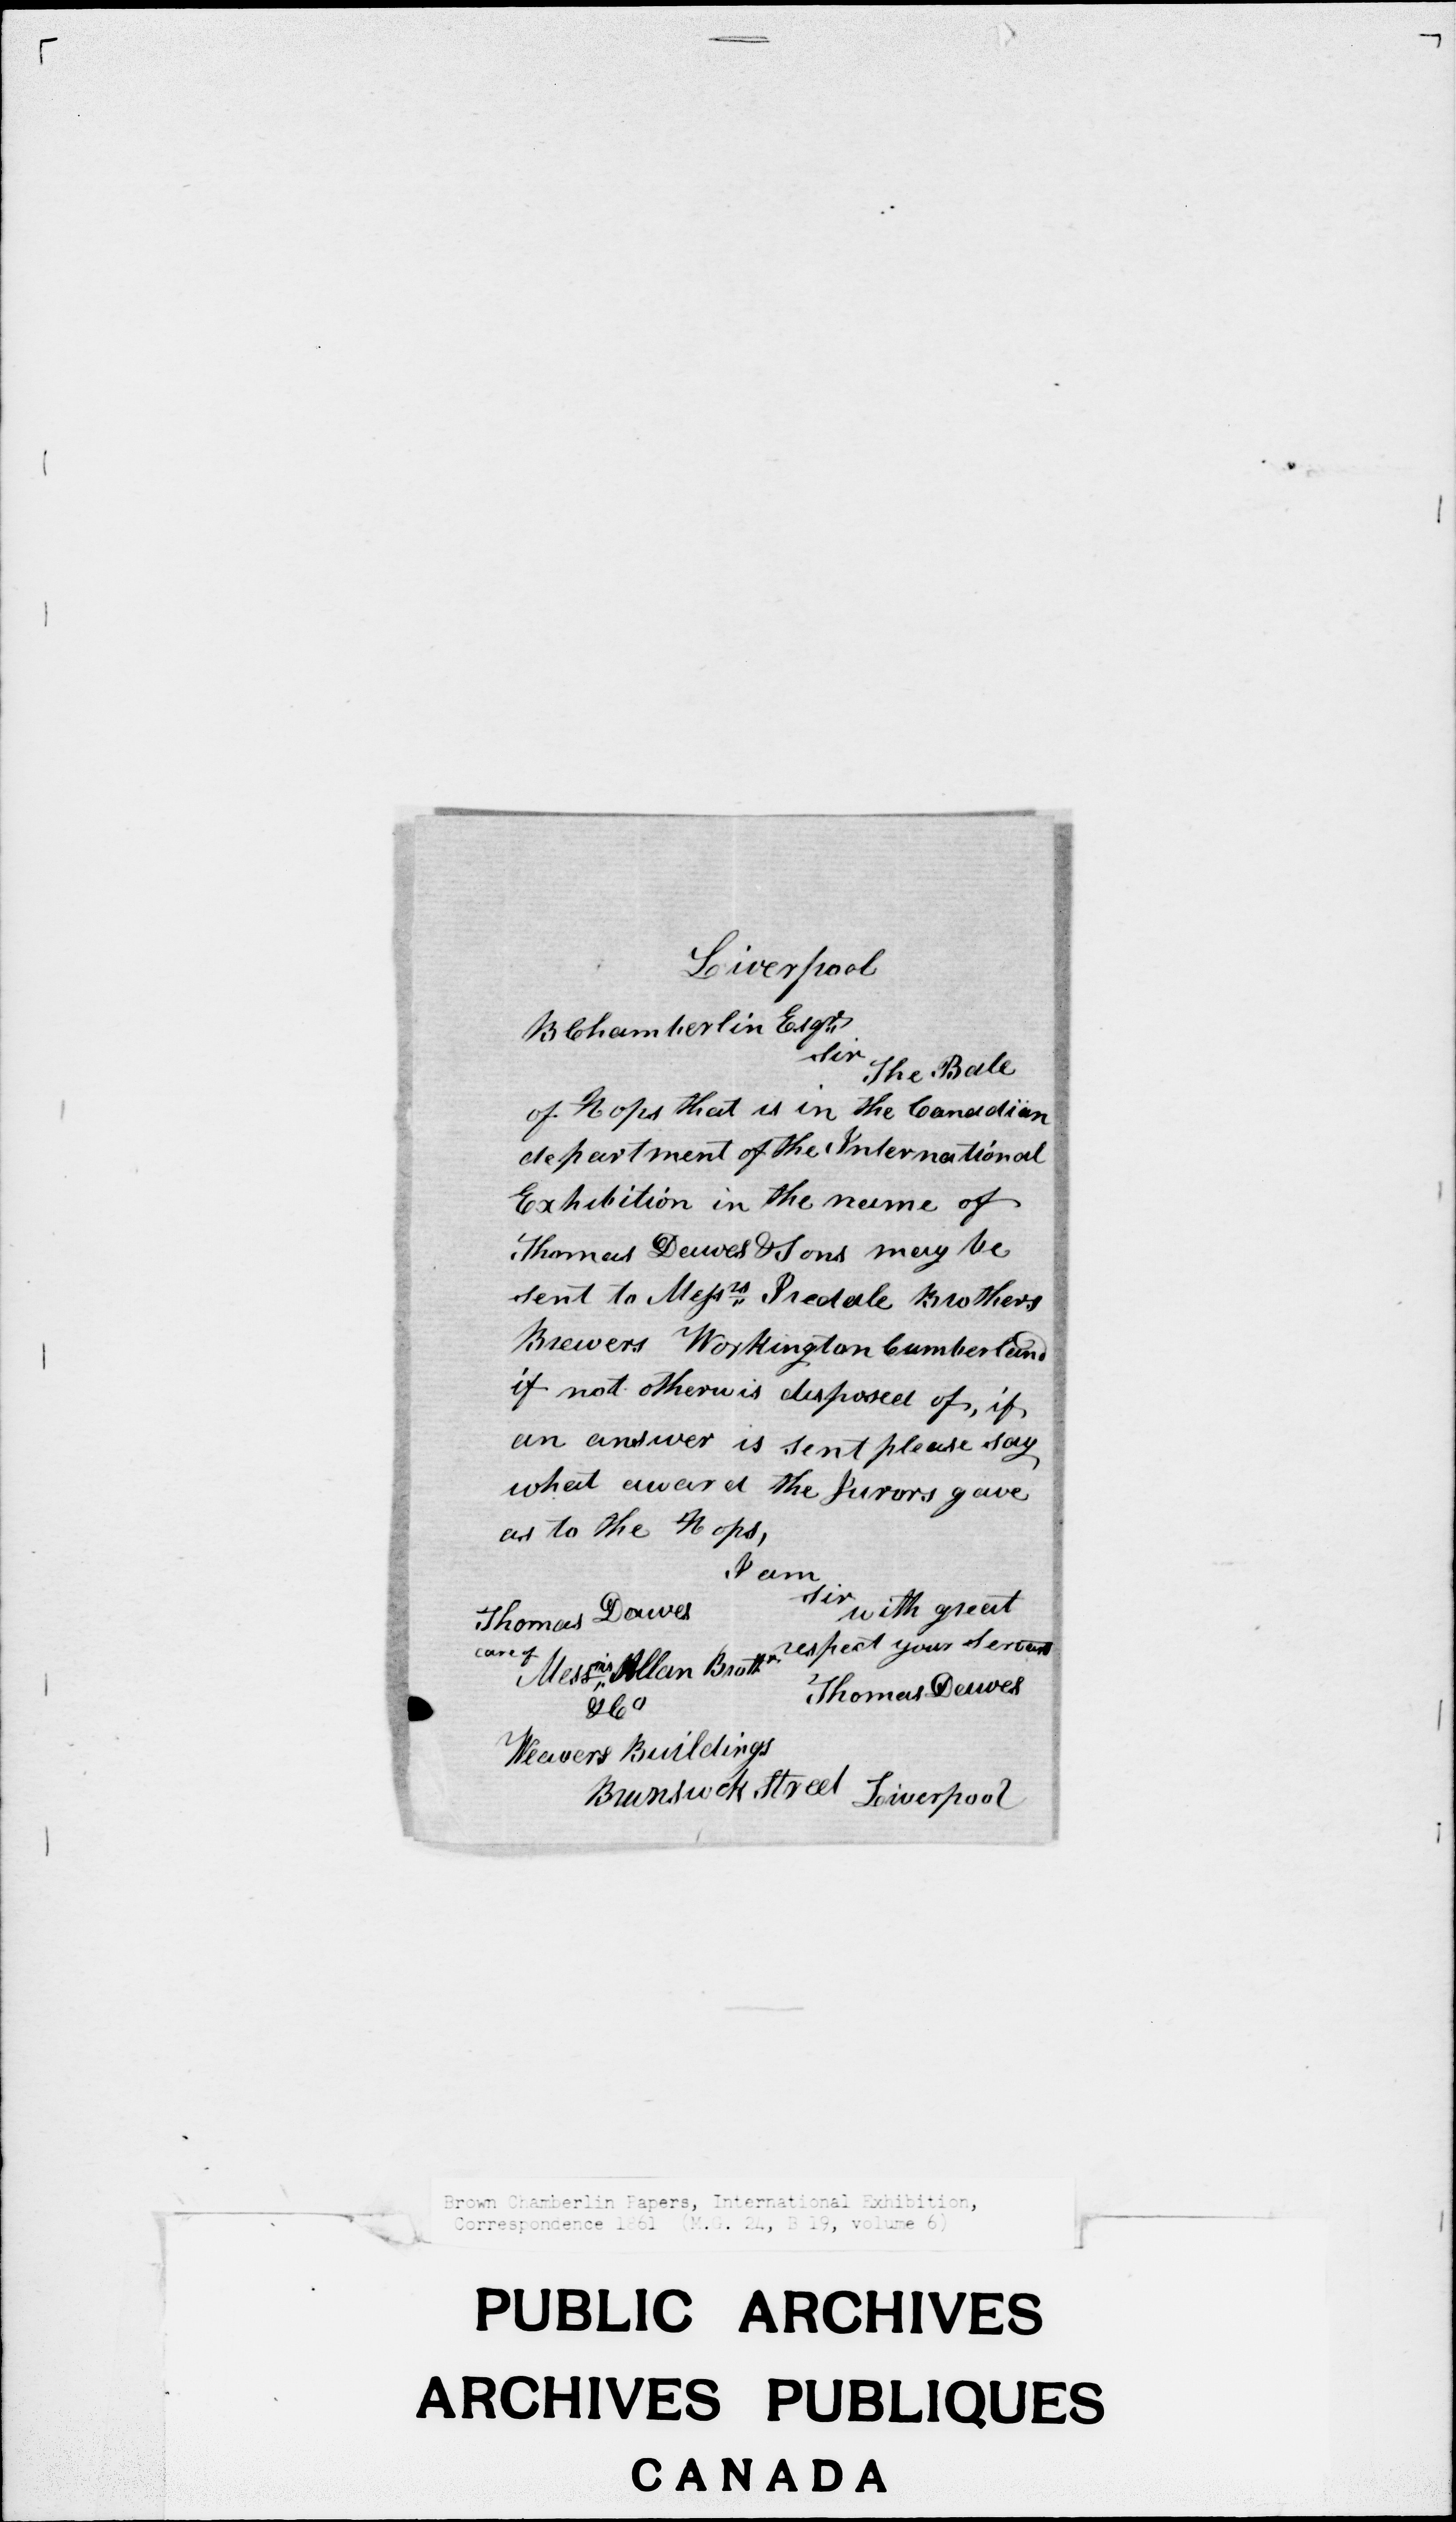 Liverpool
B Chamberlin Esqr
Sir The Bale
of Hops that is in the Canadian
department of the International
Exhibition in the name of
Thomas Dawes & Sons may be
sent to Messrs Iredale Brothers
Brewers Workington Cumberland
if not otherwis disposed of, if
an answer is sent please say
what award the Jurors gave
as to the Hops,
I am
Sir with great
respect your Servant
Thomas Dawes
Thomas Dawes
care of
Messrs Allan Brothr
& Co
Weavers Buildings
Brunswck Street Liverpool
Brown Chamberlin Papers, International Exhibition,
Correspondence 1861 (M.G. 24, B 19, volume 6)
PUBLIC ARCHIVES
ARCHIVES PUBLIQUES
CANADA